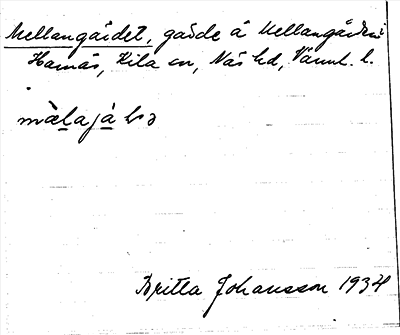 Mellangärdet, gärde å Mellangården i
Hamnäs, Kila sn, Näs hd, Värml. l.
màlajà
Britta Johansson 1934